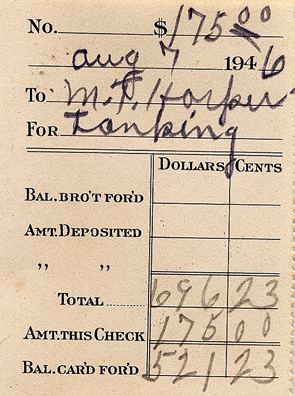 No. $175 00
aug 7 1946
To M.F. Harper
For Tanking
Dollars Cents
Bal. Bro't For'd
Amt. Deposited
" "
Total ...... 696 23
Amt. This Check 175 00
Bal. Car'd For'd 521 23